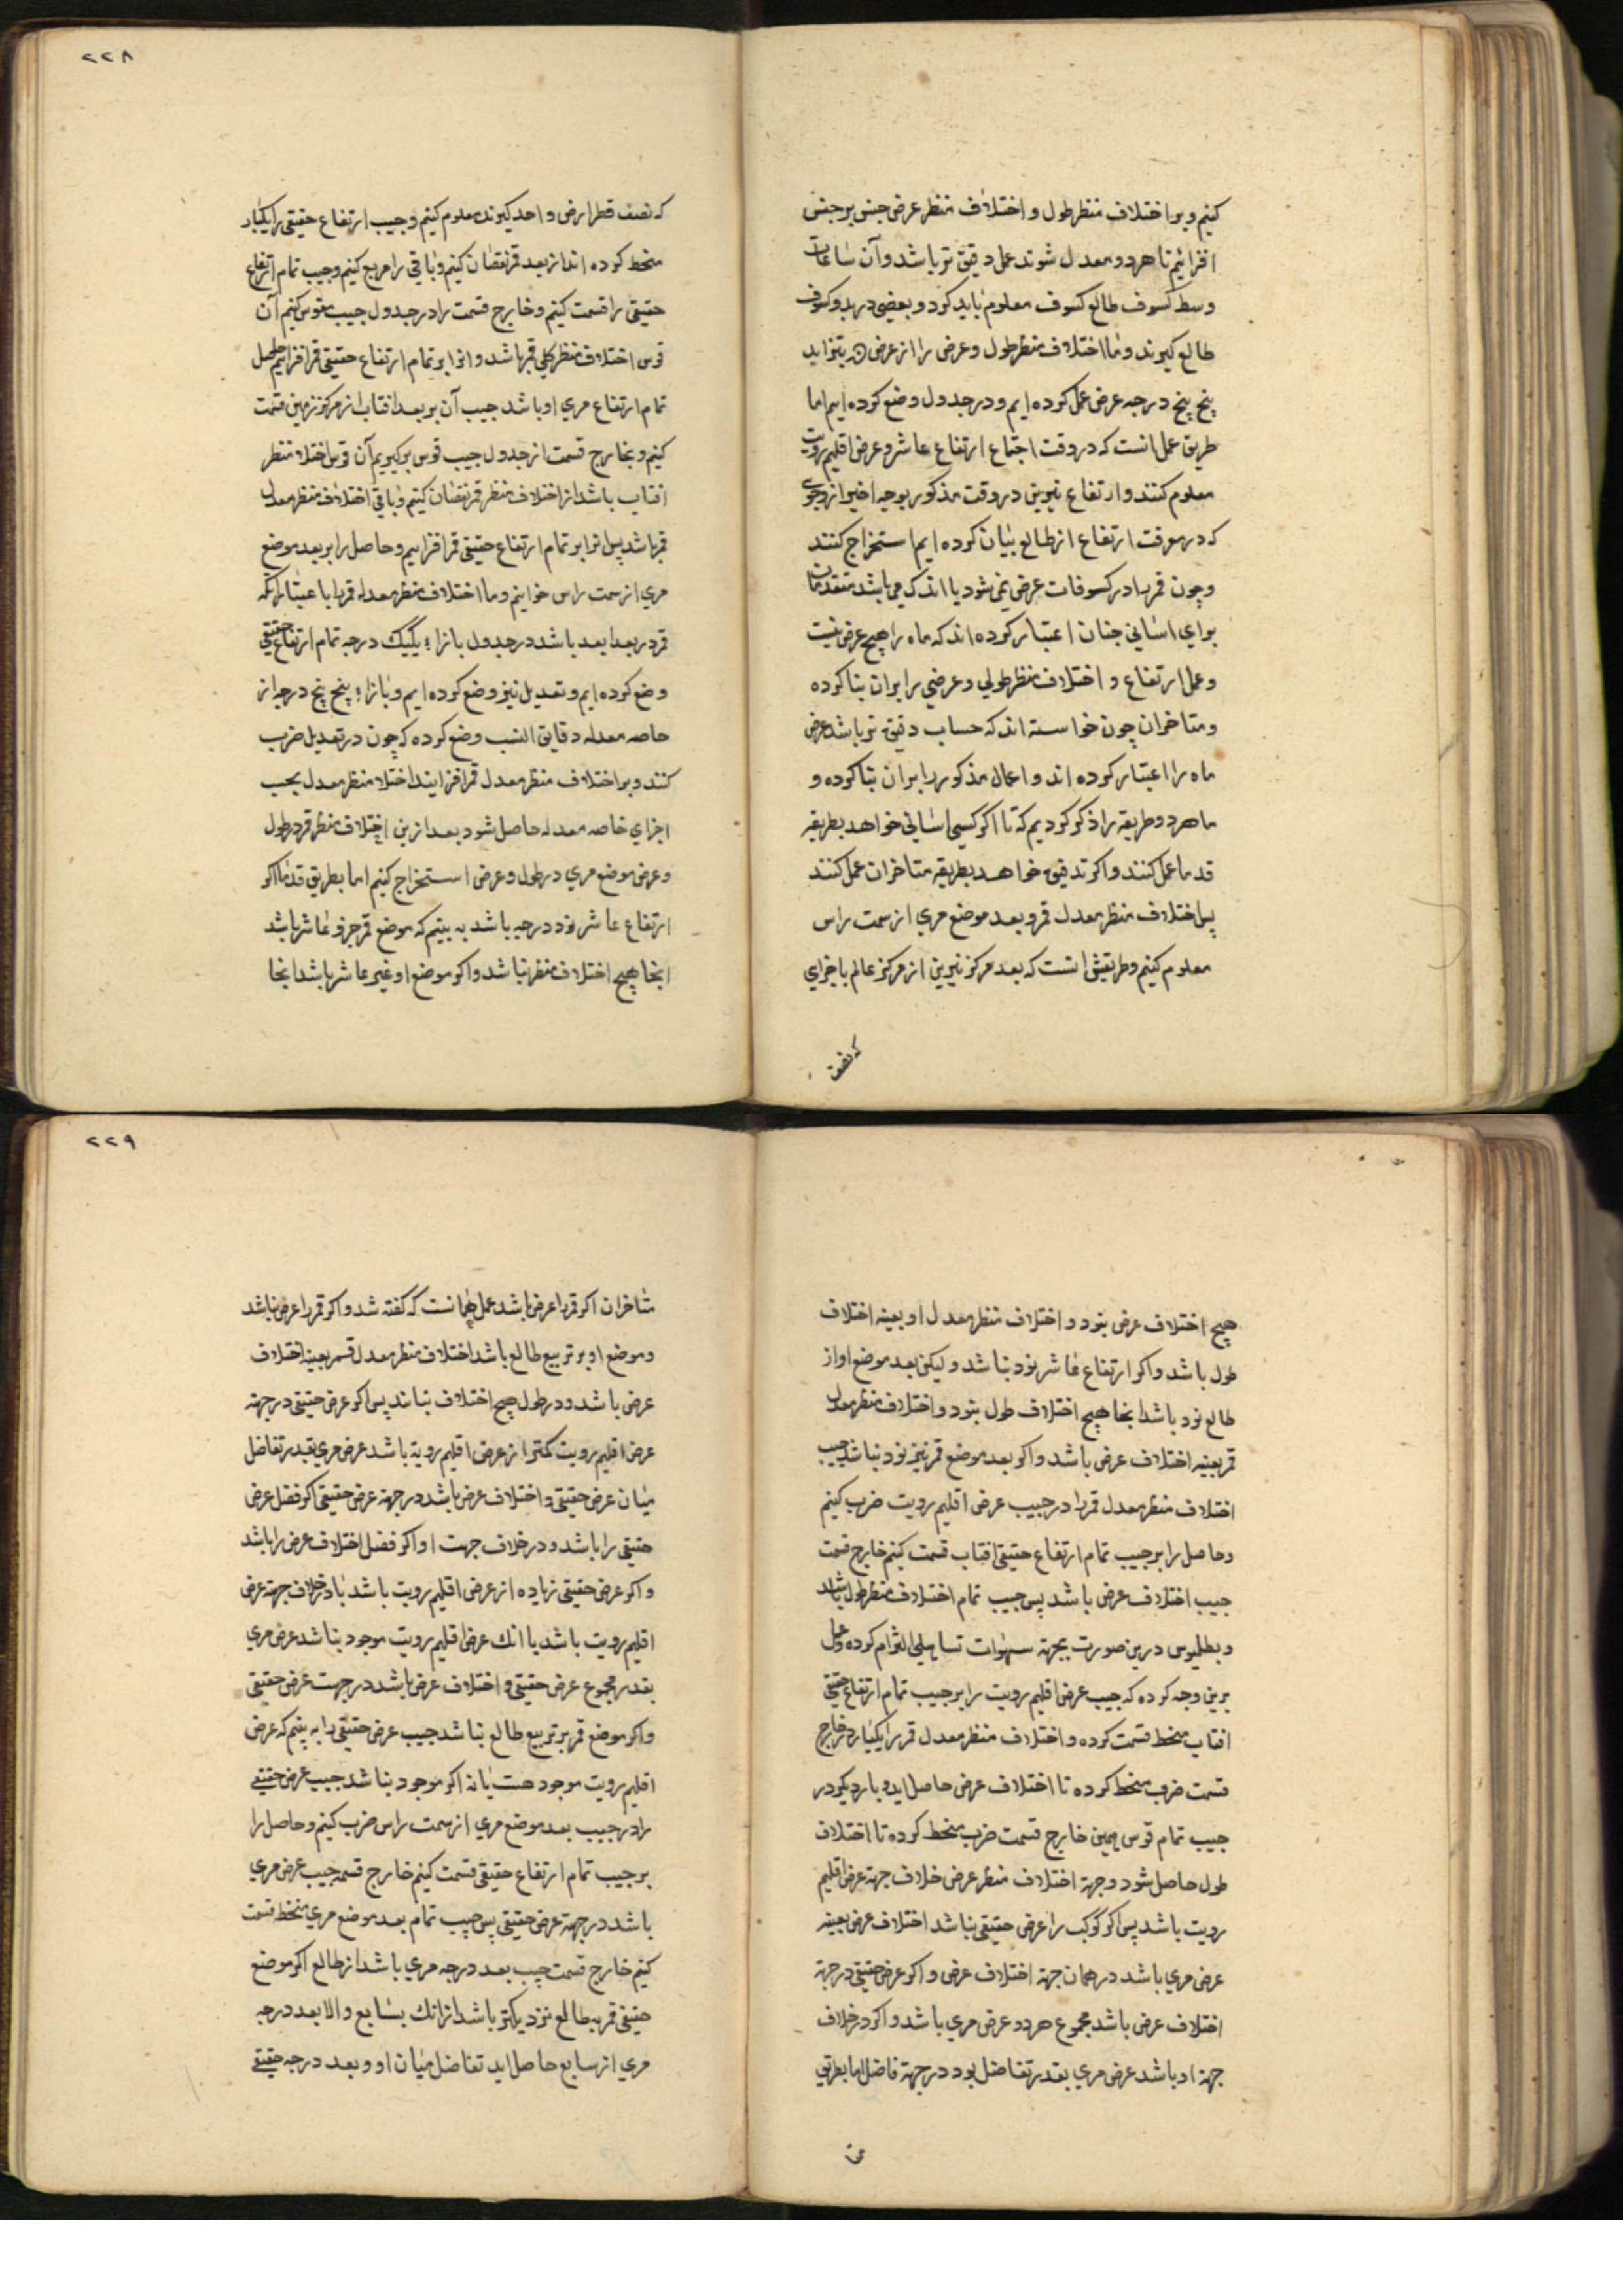 کنیم و بر اختلاف منظر طول و اختلاف منظر عرض جنس بر جنس
افزائیم تا هر دو معدل شوند عمل دقیق تر باشد و آن ساعات
وسط کسوف طالع کسوف معلوم باید کرد و بعضی در بدو کسوف
طالع کیرند و ما اختلاف منظر طول و عرض را از عرض بتزاید
پنج پنج درجه عرض عمل کرده ایم و در جدول وضع کرده ایم اما
طریق عمل انست که در وقت اجتماع ارتفاع عاشر و عرض اقلیم رویت
معلوم کنند و ارتفاع نیرین در وقت مذکور بوجه اخیر از وجوی
که در معرفت ارتفاع از طالع بیان کرده ایم استخراج کنند
و چون قمر را در کسوفات عرض نمی شود یا اندک می باشد متقدمان
برای اسانی چنان اعتبار کرده اند که ماه را هیچ عرض نیست
و عمل ارتفاع و اختلاف منظر طولی و عرضی را بران بنا کرده
و متاخران چون خواسته اند که حساب دقیق تر باشد عرض
ماه را اعتبار کرده اند و اعمال مذکور را بران بنا کرده و
ما هر دو طریقه را ذکر کردیم که تا اکر کسی اسانی خواهد بطریقه
قدما عمل کنند و اکر تدقیق خواهد بطریقه متاخران عمل کنند
پس اختلاف منظر معدل قمر و بعد موضع مری از سمت راس
معلوم کنیم و طریقش انست که بعد مرکز نیرین از مرکز عالم باجزای
که نصف
۲۲۸
که نصف قطر ارض واحد کیرند معلوم کنیم و جیب ارتفاع حقیقی را یکبار
منحط کرده انداز بعد قمر نقصان کنیم و باقی را مربع کنیم و جیب تمام ارتفاع
حقیقی را قسمت کنیم و خارج قسمت را در جدول جیب مقوس کنیم آن
قوس اختلاف منظر کلی قمر باشد و انرا بر تمام ارتفاع حقیقی قمر افزاییم حاصل
تمام ارتفاع مری او باشد جیب آن بر بعد افتاب از مرکز زمین قسمت
کنیم و بخارج قسمت از جدول جیب قوس برکیریم آن قوس اختلاف منظر
افتاب باشد از اختلاف منظر قمر نقصان کنیم و باقی اختلاف منظر معدل
قمر باشد پس انرا بر تمام ارتفاع حقیقی قمر افزاییم و حاصل را بر بعد موضع
مری از سمت راس خوانیم و ما اختلاف منظر معدل قمر را با عتبار انکه
قمر در بعد ابعد باشد در جدول بازاء یکیک درجه تمام ارتفاع حقیقی
وضع کرده ایم و تعدیل نیز وضع کرده ایم و بازاء پنج پنج درجه از
خاصه معدله دقایق النسب وضع کرده که چون در تعدیل ضرب
کنند و بر اختلاف منظر معدل قمر افزایند اختلاف منظر معدل بحسب
اجزای خاصه معدله حاصل شود بعد ازین اختلاف منظر قمر در طول
و عرض موضع مری در طول و عرض استخراج کنیم اما بطریق قدما اکر
ارتفاع عاشر نود درجه باشد به بینیم که موضع قمر جزو عاشر باشد
انجا هیچ اختلاف منظر نباشد و اکر موضع او غیر عاشر باشد انجا
هیچ اختلاف عرض نبود و اختلاف منظر معدل او بعینه اختلاف
طول باشد و اکر ارتفاع عاشر نود نباشد و لیکن بعد موضع او از
طالع نود باشد انجا هیچ اختلاف طول نبود و اختلاف منظر معدل
قمر بعینه اختلاف عرض باشد و اکر بعد موضع قمر نیز نود نباشد جیب
اختلاف منظر معدل قمر را در جیب عرض اقلیم رویت ضرب کنیم
و حاصل را بر جیب تمام ارتفاع حقیقی افتاب قسمت کنیم خارج قسمت
جیب اختلاف عرض باشد پس جیب تمام اختلاف منظر طول باشد
و بطلمیوس درین صورت بجهة سهولت تساهلی التزام کرده و عمل
برین وجه کرده که جیب عرض اقلیم رویت را بر جیب تمام ارتفاع حقیقی
افتاب منحط قسمت کرده و اختلاف منظر معدل قمر را یکبار در خارج
قسمت ضرب منحط کرده تا اختلاف عرض حاصل اید و بار دیکر در
جیب تمام قوس همین خارج قسمت ضرب منحط کرده تا اختلاف
طول حاصل شود و جهة اختلاف منظر عرض خلاف جهة عرض اقلیم
رویت باشد پس اکر کوکب را عرض حقیقی نباشد اختلاف عرض بعینه
عرض مری باشد در همان جهة اختلاف عرض و اکر عرض حقیقی در جهة
اختلاف عرض باشد مجموع هر دو عرض مری باشد و اکر در خلاف
جهة او باشد عرض مری بقدر تفاضل بود در جهة فاضل اما بطریق
۲۲۹
متاخران اکر قمر را عرض باشد عمل همانست که کفته شد و اکر قمر را عرض نباشد
و موضع او بر تربیع طالع باشد اختلاف منظر معدل قسم بعینه اختلاف
عرض باشد و در طول هیچ اختلاف نباشد پس اکر عرض حقیقی در جهة
عرض اقلیم رویت کمتر از عرض اقلیم رویة باشد عرض مری بقدر تفاضل
میان عرض حقیقی و اختلاف عرض باشد در جهة عرض حقیقی اکر فضل عرض
حقیقی را باشد و در خلاف جهت او اکر فضل اختلاف عرض را باشد
و اکر عرض حقیقی زیاده از عرض اقلیم رویت باشد یا در خلاف جهة عرض
اقلیم رویت باشد یا انک عرض اقلیم رویت موجود نباشد عرض مری
بقدر مجموع عرض حقیقی و اختلاف عرض باشد در جهت عرض حقیقی
و اکر موضع قمر بر تربیع طالع نباشد جیب عرض حقیقی را به بینیم که عرض
اقلیم رویت موجود هست یا نه اکر موجود نباشد جیب عرض حقیقی
را در جیب بعد موضع مری از سمت راس ضرب کنیم و حاصل را
بر جیب تمام ارتفاع حقیقی قسمت کنیم خارج قسمه جیب عرض مری
باشد در جهة عرض حقیقی پس جیب تمام بعد موضع مری منحط قسمت
کنیم خارج قسمت جیب بعد درجه مری باشد از طالع اکر موضع
حقیقی قمر به طالع نزدیکتر باشد از انک بسابع و الا بعد درجه
مری از سابع حاصل اید تفاضل میان او و بعد درجه حقیقی